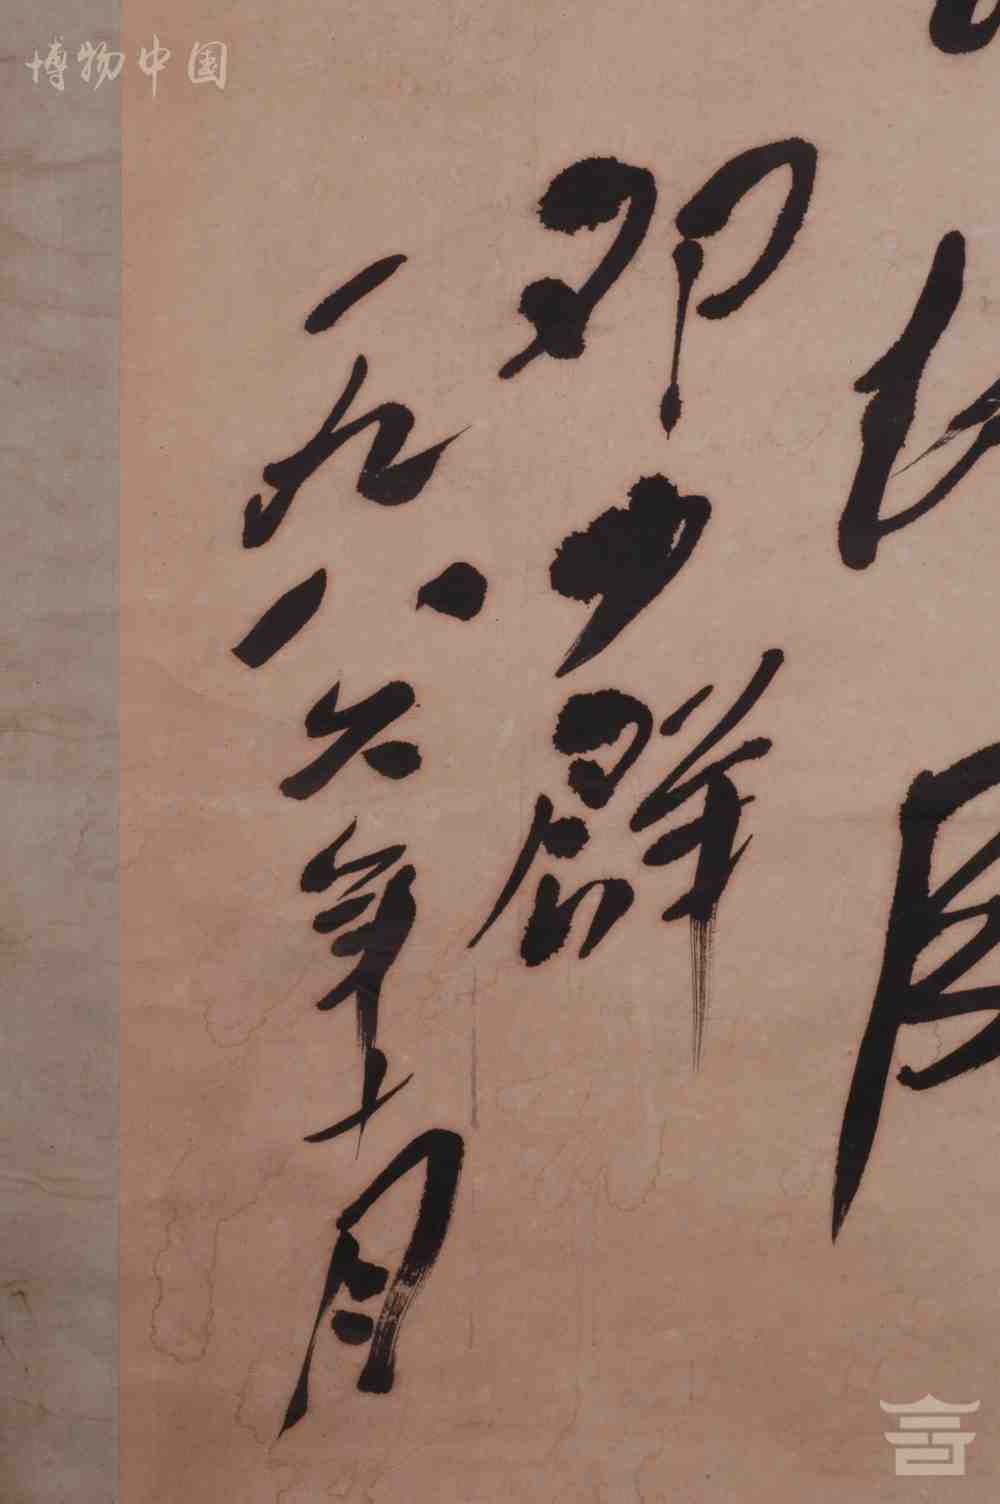 博物中国
邓少群
一九八六年十月